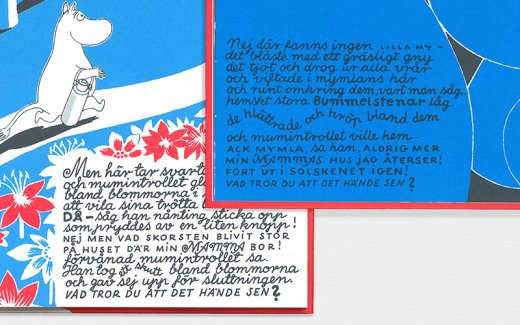 Men här tar svarta
och mumintrollet gl
bland blommorna i
att vila sina trötta b
DÅ - såg han nånting sticka opp
som pryddes av en liten knopp!
NEJ MEN VAD SKORSTEN BLIVIT STOR
PÅ HUSET DÄR MIN MAMMA BOR!
förvånad mumintrollet sa.
Han tog ett skutt bland blommorna
och gav sej upp för sluttningen.
VAD TROR DU ATT DET HÄNDE SEN?
Nej där fanns ingen LILLA MY -
det blåste med ett gräsligt gny
det tjöt och drog i alla vrår
och viftade i mymlans hår
och runt omkring dem, vart man såg
hemskt stora Bummelstenar låg.
de klättrade och kröp bland dem
och mumintrollet ville hem -
ACK MYMLA, sa han, ALDRIG MER
MIN MAMMAS HUS JAG ÅTERSER!
FORT UT I SOLSKENET IGEN!
VAD TROR DU ATT DET HÄNDE SEN?